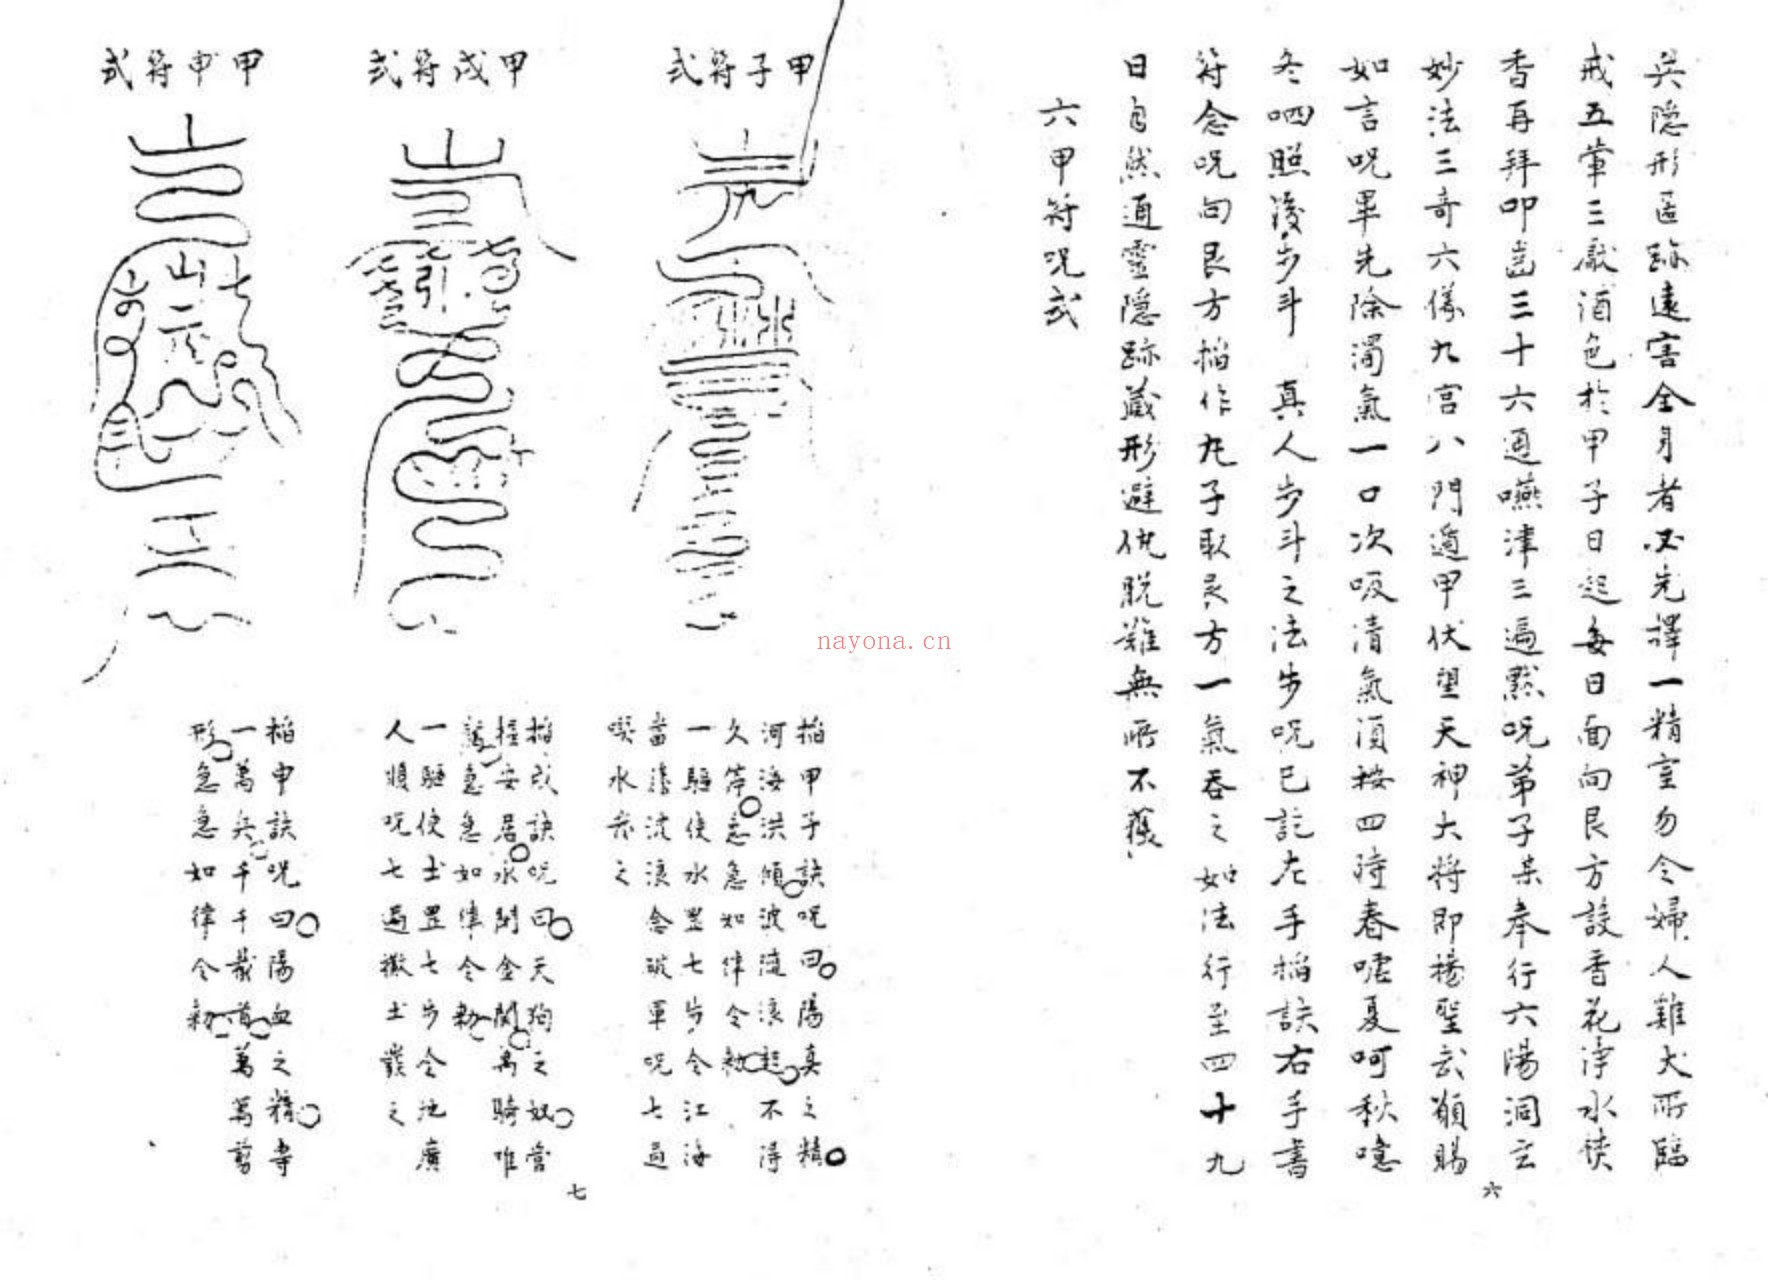 吳隐形匿跡遠害全身者必先擇一精室勿令婦人雞犬所臨
戒五葷三厭酒色於甲子日起每日面向艮方設香花淨水焚
香再拜叩齒三十六通嚥津三遍黙呪弟子某奉行六陽洞玄
妙法三奇六儀九宮八門遁甲伏望天神大将即指聖武願賜
如言呪畢先除濁氣一口次吸清氣須按四時春噓夏呵秋噫
冬呬照後步斗 真人步斗之法步呪已訖左手掐訣右手書
符念呪向艮方掐作丸子取艮方一氣吞之如法行至四十九
日自然通靈隱跡藏形避仇脱難無所不獲
六甲符呪式
六
甲子符式
掐甲子訣呪曰陽真之精
河海洪傾波漣浪起不得
久停急急如律令勅
一驅使水罡七步令江海
當 波浪念破軍呪七過
噀水 之
甲戌符式
掐戌訣呪曰天 之奴當
安居永閉金関萬騎唯
急急如律令勅
一驅使土罡七步令 廣
人順呪七過撒土 之
甲申符式
掐申訣呪曰陽血之精寺
一萬兵千千 首萬萬剪
形急急如律令勅
七
nayona.cn